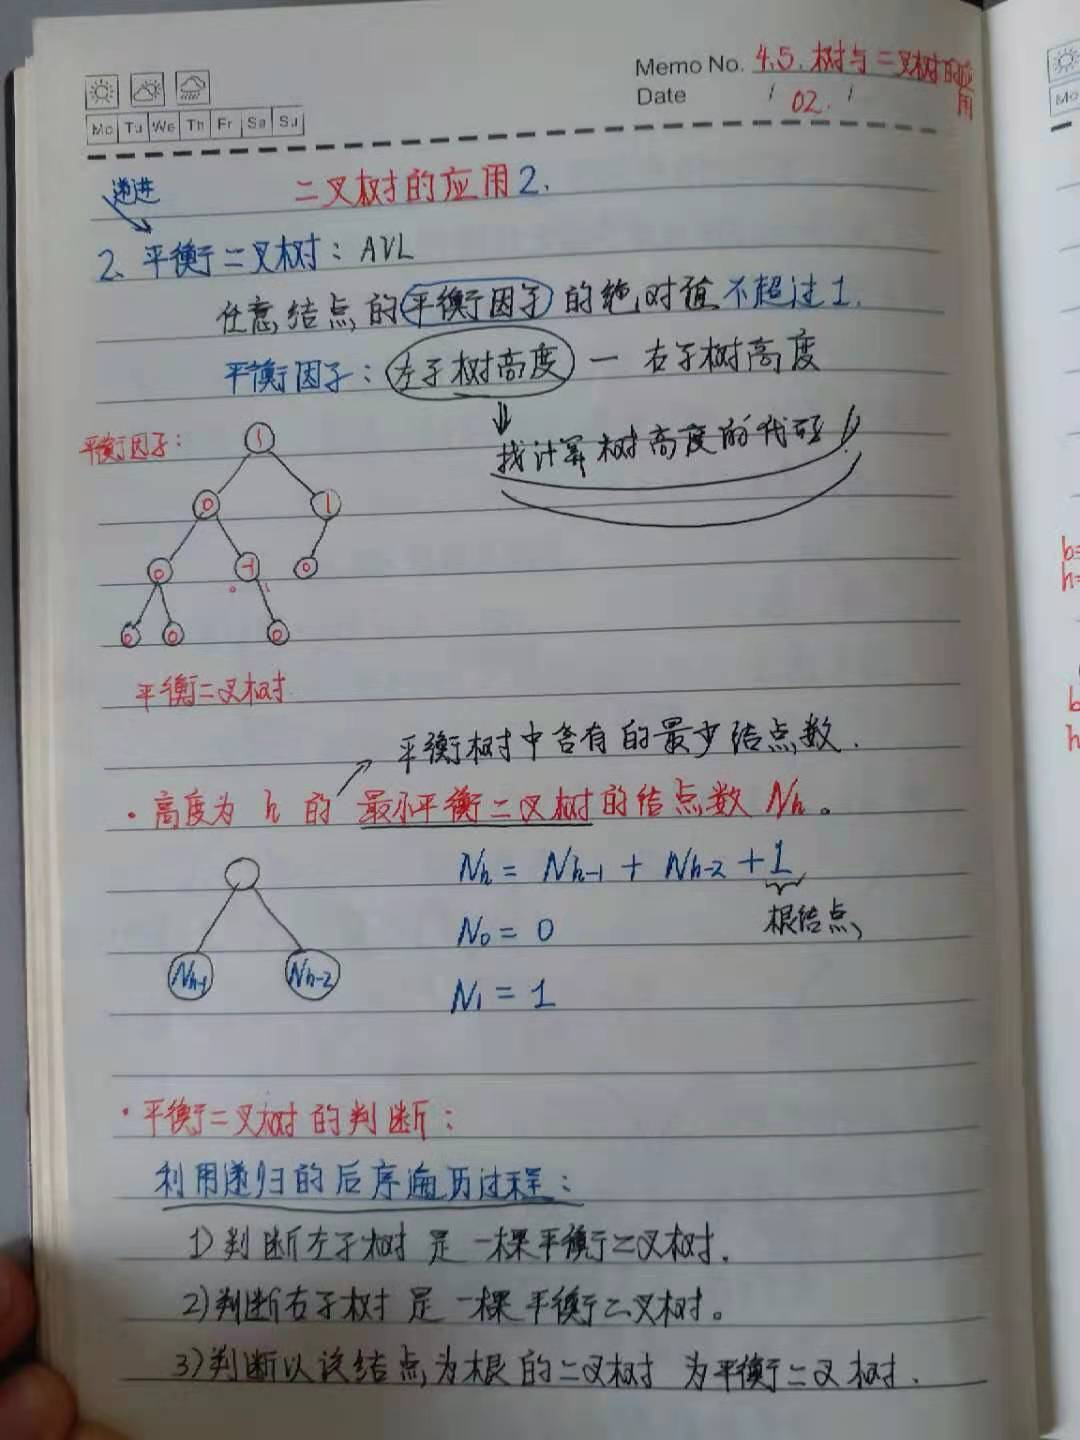 Memo No. 4.5. 树与二叉树的应用
Date / 02. /
Mo Tu We Th Fr Sa Su
递进
二叉树的应用2.
2、平衡二叉树: AVL
任意结点的平衡因子的绝对值不超过1.
平衡因子: 左子树高度 — 右子树高度
找计算树高度的代码!
平衡因子:
1
0 1
0 -1 0
0 0 0
平衡二叉树
平衡树中含有的最少结点数.
·高度为 h 的 最小平衡二叉树的结点数 Nh。
Nh = Nh-1 + Nh-2 + 1
根结点
N0 = 0
Nh-1 Nh-2
N1 = 1
·平衡二叉树的判断:
利用递归的后序遍历过程:
1) 判断左子树 是 一棵平衡二叉树.
2) 判断右子树 是 一棵 平衡二叉树。
3) 判断以该结点为根的二叉树 为平衡二叉树.
Mo
b=
h=
b
h